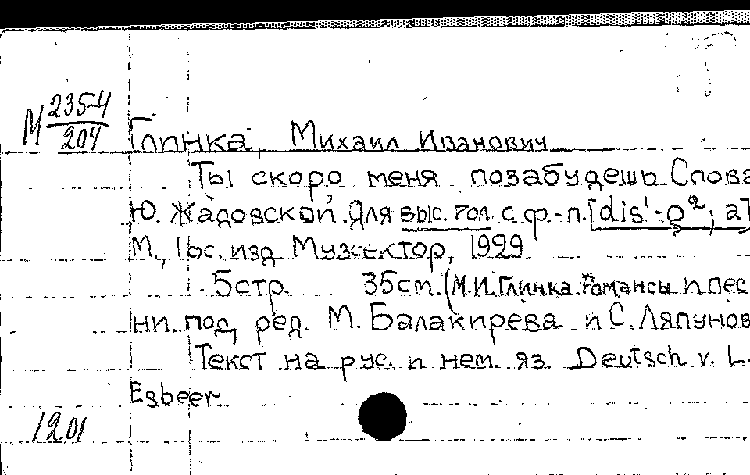 М 235-4
204
Глинка, Михаил Иванович
Ты скоро меня позабудешь Слова
Ю. Жадовской. Для выс. гол. с ф.-п. [dis¹-g²; a]
М., Гос. изд. Музсектор, 1929
5 стр. 35 см. (М.И. Глинка. Романсы и пес
ни под ред. М. Балакирева и С. Ляпунов
Текст на рус. и нем. яз. Deutsch v. L.
Esbeer
1201